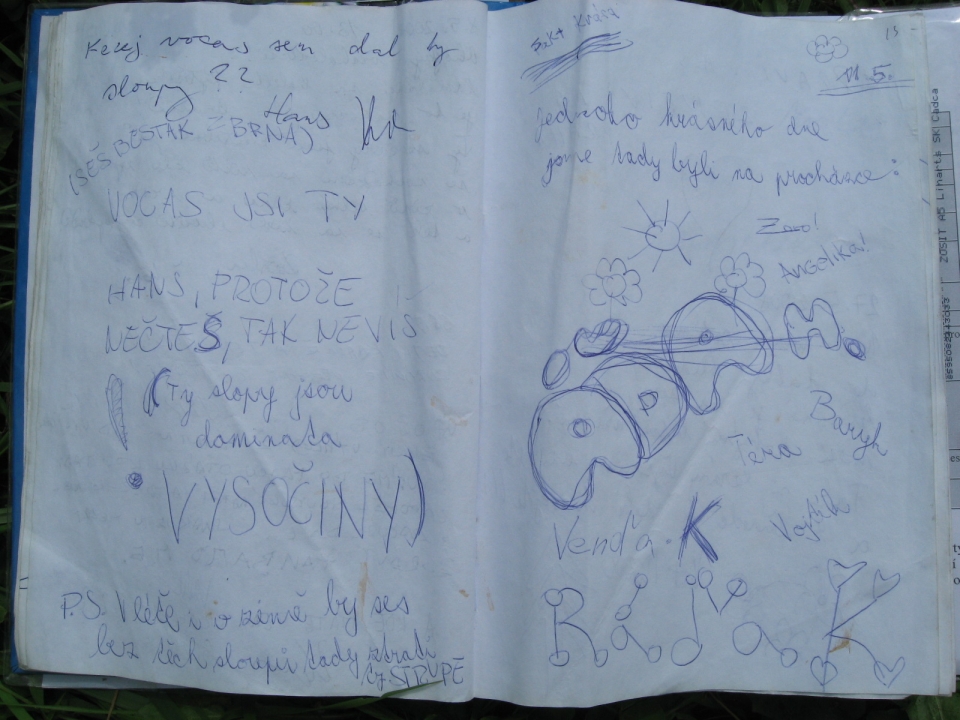 Kerej vocas sem dal ty
sloupy ??
Hans
(SEŠ BESŤÁK Z BRNA)
VOCAS JSI TY
HANS, PROTOŽE
NEČTEŠ, TAK NEVÍŠ
! (Ty slopy jsou
daminata
VYSOČINY)
P.S. V léčě i v zimě by ses
bez těch sloupů tady ztratil
TY STRUPE
11. 5.
jednoho krásného dne
jsme tady byli na procházce:
Angelika!
P
Baryk
Téra
Venďa K
Vojtěch
Radka K
ZOSIT A5 Linarts Sk Cadca